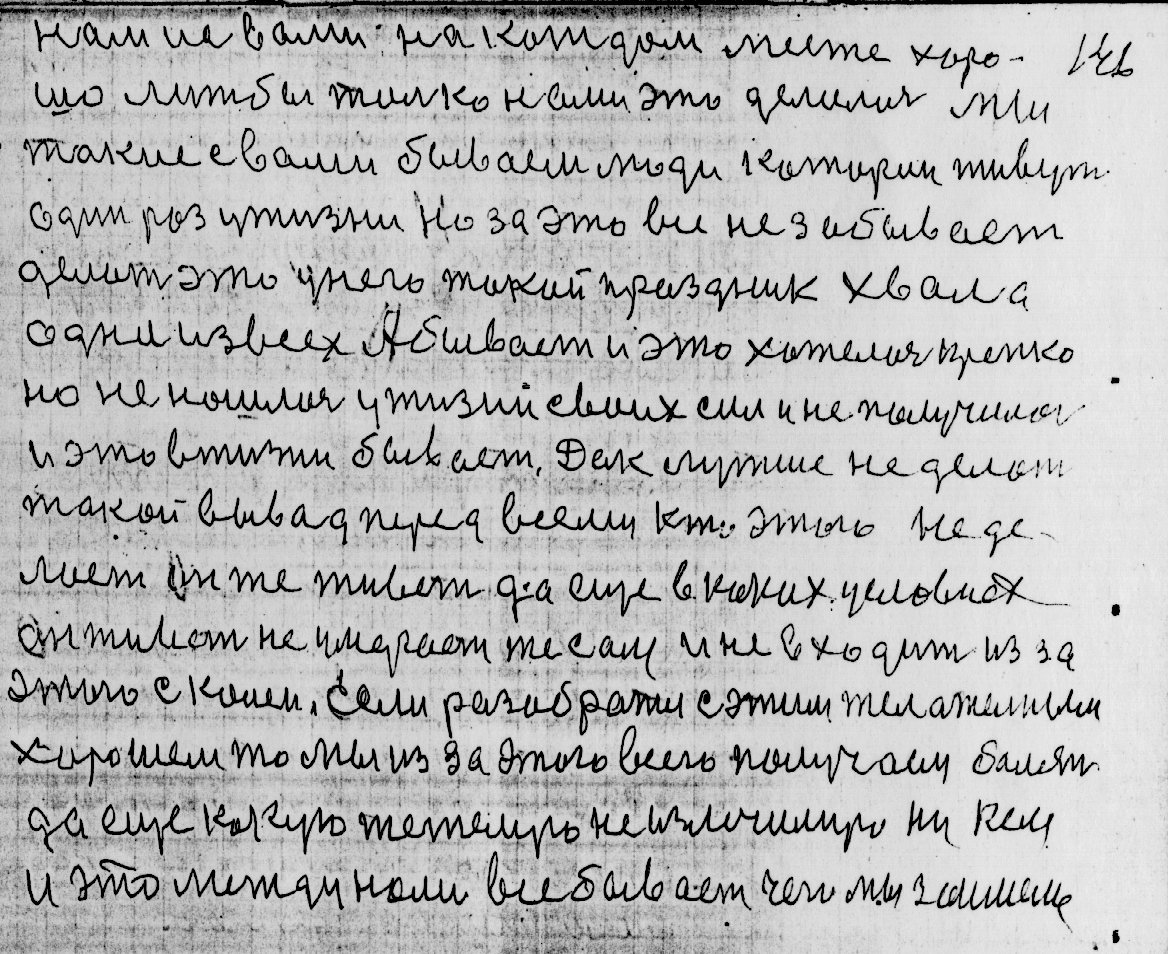 нам и с вами на котдом месте хоро- 146
шо литбы толко нами это делалося мы
такие с вами бываем люди которыи тивут
один роз у тизни но за это все не забывает
делат это у него такой праздник хвала
одни из всех А бывает и это хотелося крепко
но не ношлося у тизни своих сил и не получилос
и это в тизни бывает. Дак лутше не делат
такой вывад перед всему кто этого не де-
лает он те тивет да еще в каких условиях
он тивет не умерает те сам и не входит из за
этого с колеи. Если разобрати с этим телателным
хорошем то мы из за этого всего получаем болезн
да еще какую тетелую не излечимую ни кем
и это между нами все бывает чего мы